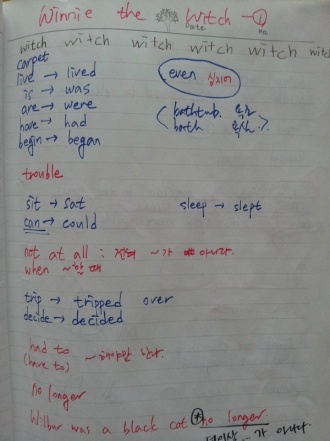 Winnie the Witch - ①
Date
No.
witch witch witch witch witch witch
carpet
live → lived
even 심지어
is → was
are → were
bathtub. 욕조
have → had
bath 목욕
begin → began
trouble
sit → sat
sleep → slept
can → could
not at all : 전혀 ~가 아니다.
when ~할 때
trip → tripped over
decide → decided
had to
(have to) ~해야만 한다.
no longer
Wilbur was a black cat no longer.
더이상 ... 가 아니다.